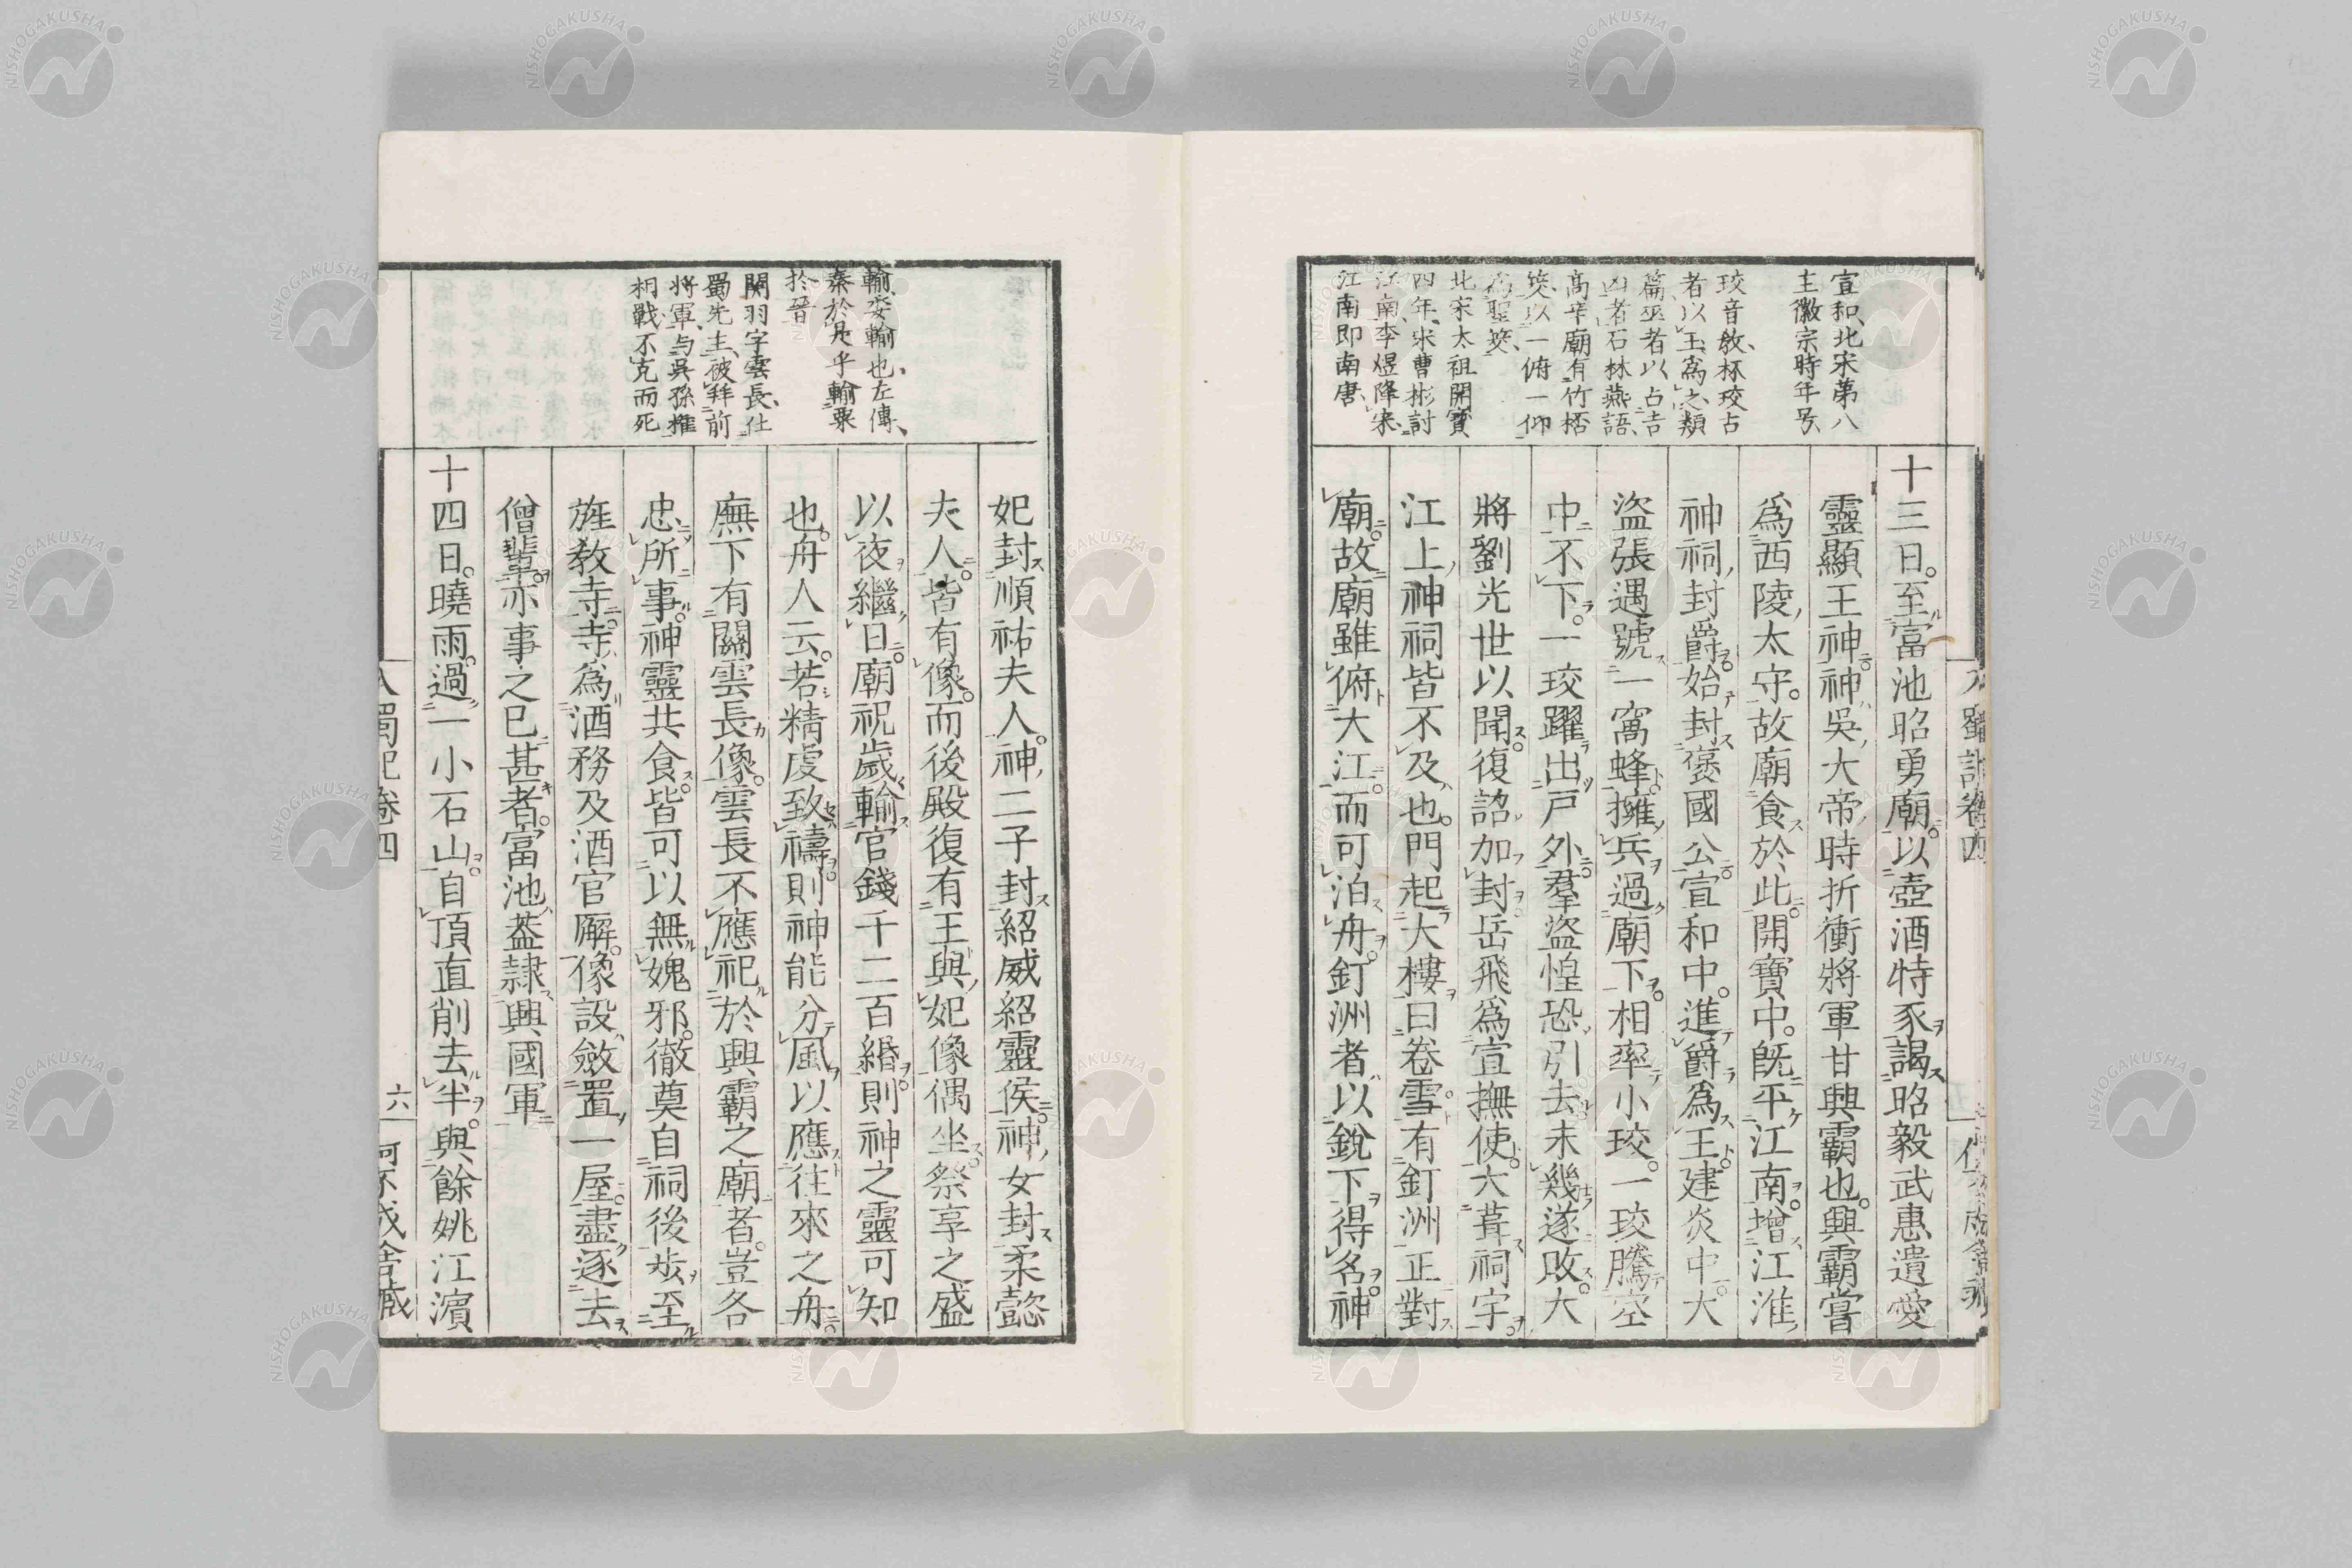 宣和北宋第八
主徽宗時年号
珓音敎杯珓占
者以玉爲之類
篇巫者以占吉
凶者石林燕語
高辛廟有竹桮
筊以一俯一仰
爲聖筊
北宋太祖開寶
四年宋曹彬討
江南李煜降宋
江南即南唐
十三日至富池昭勇廟以壺酒特豕謁昭毅武惠遺愛
靈顯王神神吳大帝時折衝將軍甘興霸也興霸嘗
爲西陵太守故廟食於此開寶中旣平江南增江淮
神祠封爵始封褒國公宣和中進爵爲王建炎中大
盜張遇號一窩蜂擁兵過廟下相率卜珓一珓騰空
中不下一珓躍出戸外羣盜惶恐引去未幾遂敗大
將劉光世以聞復詔加封岳飛爲宣撫使大葺祠宇
江上神祠皆不及也門起大樓曰卷雪有釘洲正對
廟故廟雖俯大江而可泊舟釘洲者以銳下得名神
輸委輸也左傳
秦於是乎輸粟
於晉
関羽字雲長仕
蜀先主被拜前
將軍与吳孫権
相戰不克而死
妃封順祐夫人神二子封紹威紹靈侯神女封柔懿
夫人皆有像而後殿復有王與妃像偶坐祭享之盛
以夜繼日廟祝歲輸官錢千二百緡則神之靈可知
也舟人云若精虔致禱則神能分風以應往來之舟
廡下有關雲長像雲長不應祀於興霸之廟者豈各
忠所事神靈共食皆可以無媿邪徹奠自祠後步至
旌敎寺寺爲酒務及酒官廨像設斂置一屋盡逐去
僧輩亦事之已甚者富池蓋隷興國軍
十四日曉雨過一小石山自頂直削去半與餘姚江濱
蜀記卷四
六